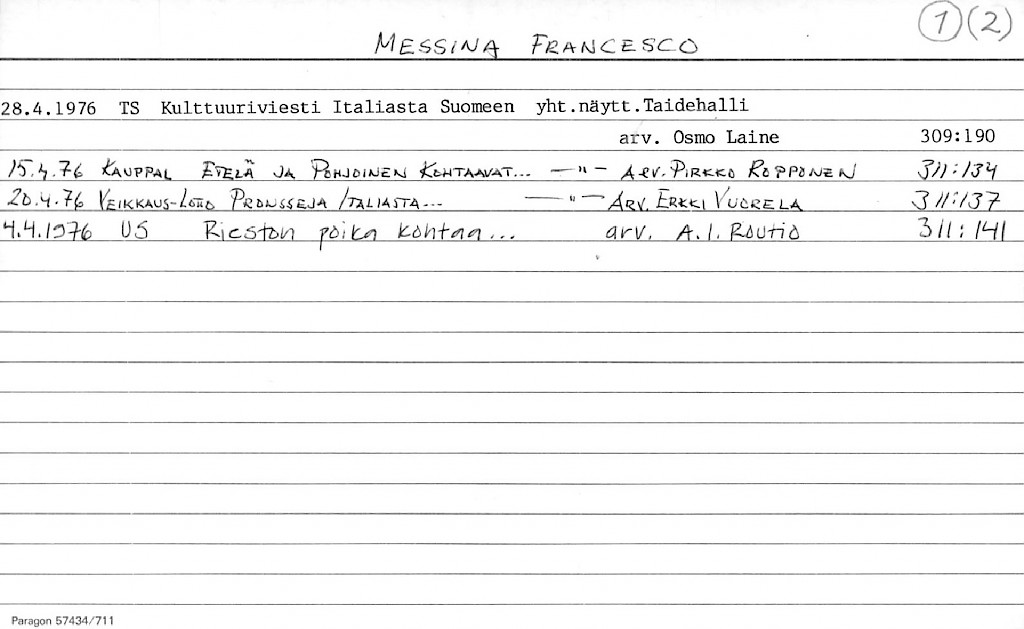 ① (2)
MESSINA FRANCESCO
28.4.1976 TS Kulttuuriviesti Italiasta Suomeen yht.näytt.Taidehalli
arv. Osmo Laine 309:190
15.4.76 KAUPPAL ETELÄ JA POHJOINEN KOHTAAVAT... —"— ARV. PIRKKO ROPPONEN 311:134
20.4.76 VEIKKAUS-LOTTO PRONSSEJA ITALIASTA... —"— ARV. ERKKI VUORELA 311:137
4.4.1976 US poika kohtaa... arv. A.I. Routio 311:141
Paragon 57434/711